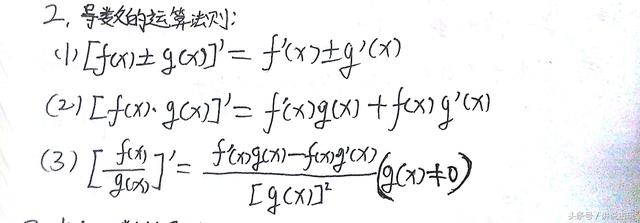 2, 导数的运算法则:
(1) [f(x)±g(x)]' = f'(x)±g'(x)
(2) [f(x)·g(x)]' = f'(x)g(x)+f(x)g'(x)
(3) [f(x)/g(x)]' = f'(x)g(x)-f(x)g'(x)/[g(x)]² (g(x)≠0)